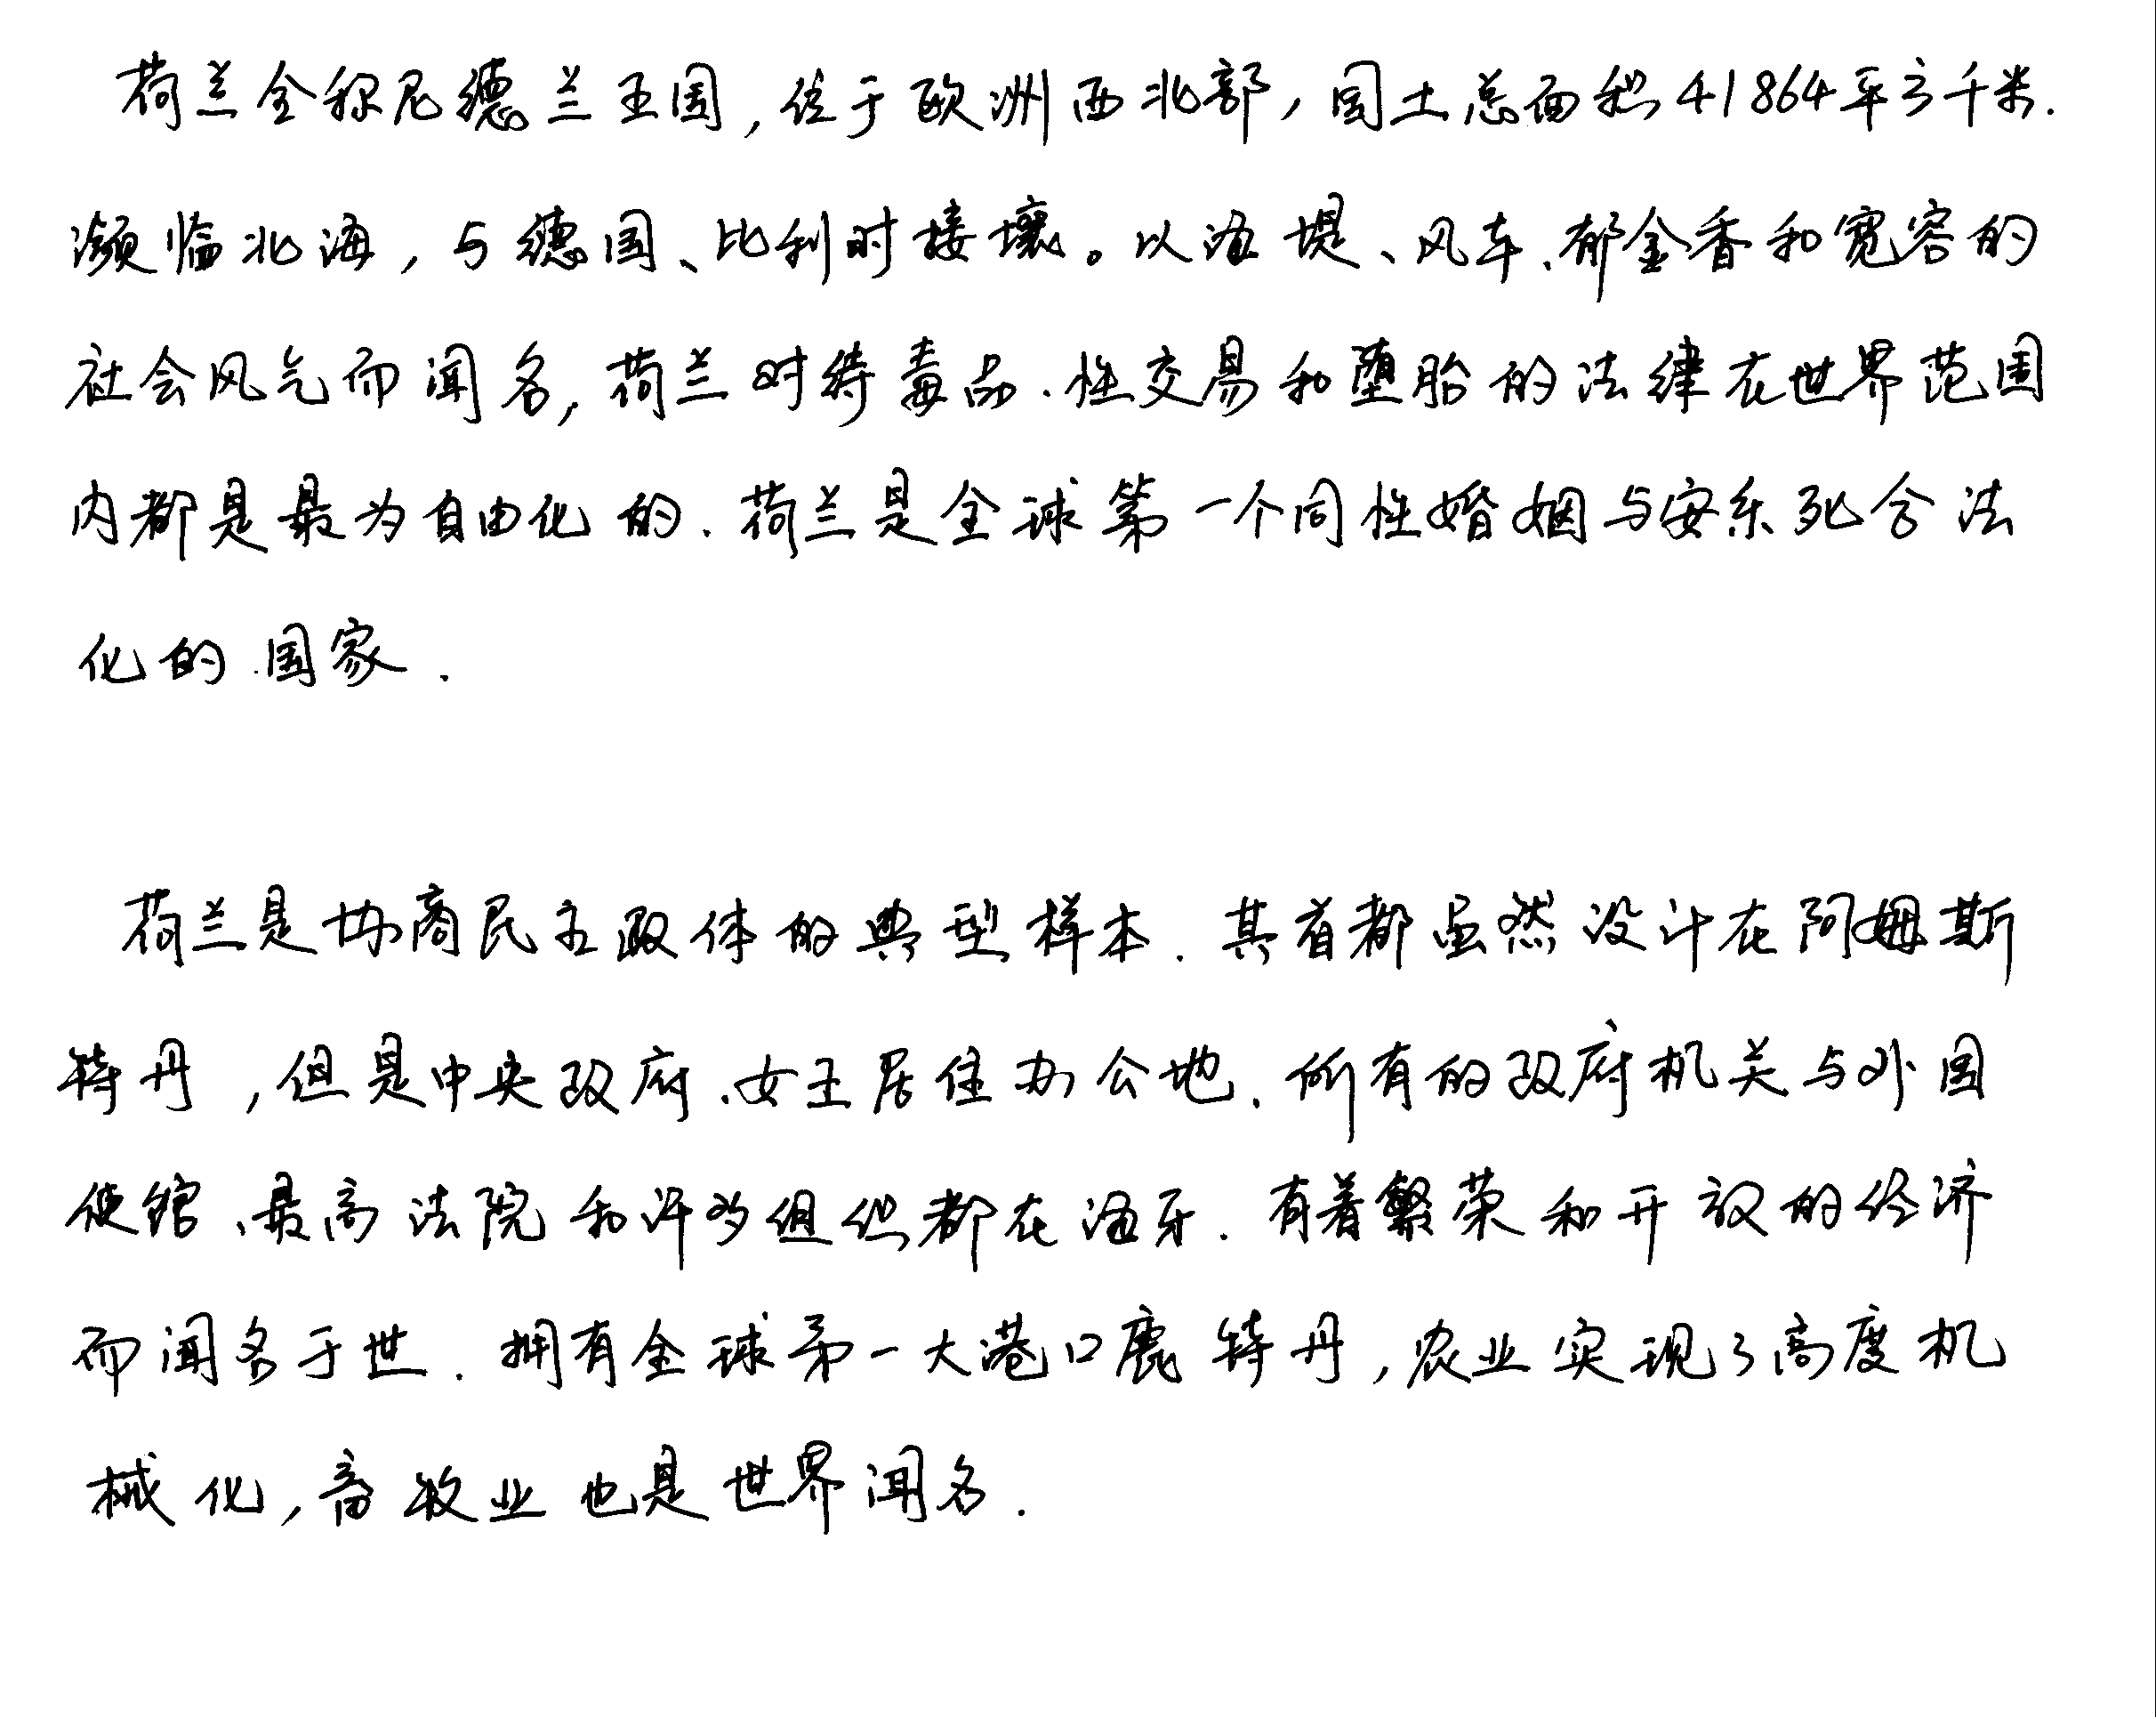 荷兰全称尼德兰王国,位于欧洲西北部,国土总面积41864平方千米.
濒临北海,与德国、比利时接壤。以海堤、风车、郁金香和宽容的
社会风气而闻名,荷兰对待毒品、性交易和堕胎的法律在世界范围
内都是最为自由化的.荷兰是全球第一个同性婚姻与安乐死合法
化的国家.
荷兰是协商民主政体的典型样本.其首都虽然设计在阿姆斯
特丹,但是中央政府、女王居住办公地、所有的政府机关与外国
使馆、最高法院和许多组织都在海牙.有着繁荣和开放的经济
而闻名于世.拥有全球第一大港口鹿特丹,农业实现了高度机
械化,畜牧业也是世界闻名.